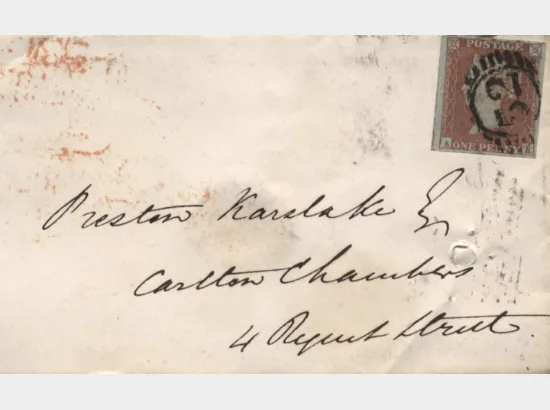 POSTAGE
ONE PENNY
Preston Karslake Esq
Carlton Chambers
4 Regent Street